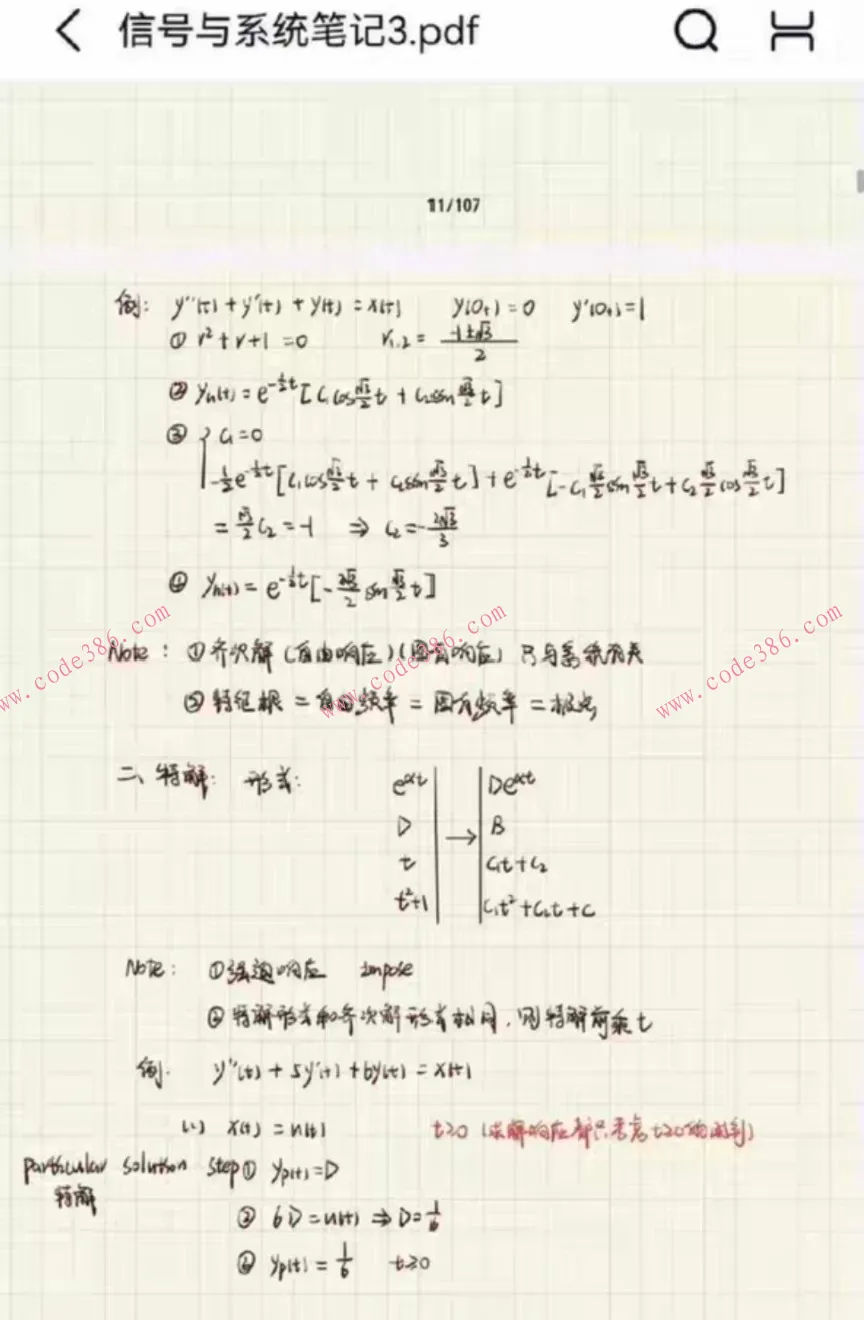 信号与系统笔记3.pdf
11/107
例: y''(t) + y'(t) + y(t) = x(t) y(0+) = 0 y'(0+) = 1
① r²+r+1 =0 r₁.₂ = (-1±√3)/2
② yh(t) = e^{-½t}[C₁cos(√3/2)t + C₂sin(√3/2)t]
③ { C₁=0
-½e^{-½t}[C₁cos(√3/2)t + C₂sin(√3/2)t] + e^{-½t}[-C₁(√3/2)sin(√3/2)t + C₂(√3/2)cos(√3/2)t]
= (√3/2)C₂ = -1 ⇒ C₂ = -2√3/3
④ yh(t) = e^{-½t}[-(2√3/2)sin(√3/2)t]
Note: ①齐次解(自由响应)(固有响应) 只与系统有关
www.code386.com www.code386.com www.code386.com
②特征根 = 自由频率 = 固有频率 = 极点
二、特解: 形式: e^{αt} | | De^{αt}
D | → | B
t | | C₁t+C₂
t²+1 | | C₁t²+C₂t+C
Note: ①强迫响应 impose
②特解形式和齐次解形式相同,则特解前乘t
例. y''(t) + 5y'(t) + 6y(t) = x(t)
(1) x(t) = u(t) t≥0 (求解响应都只考虑t≥0的时刻)
particular solution step① yp(t)=D
特解
② 6D=u(t) ⇒ D=1/6
③ yp(t) = 1/6 t≥0